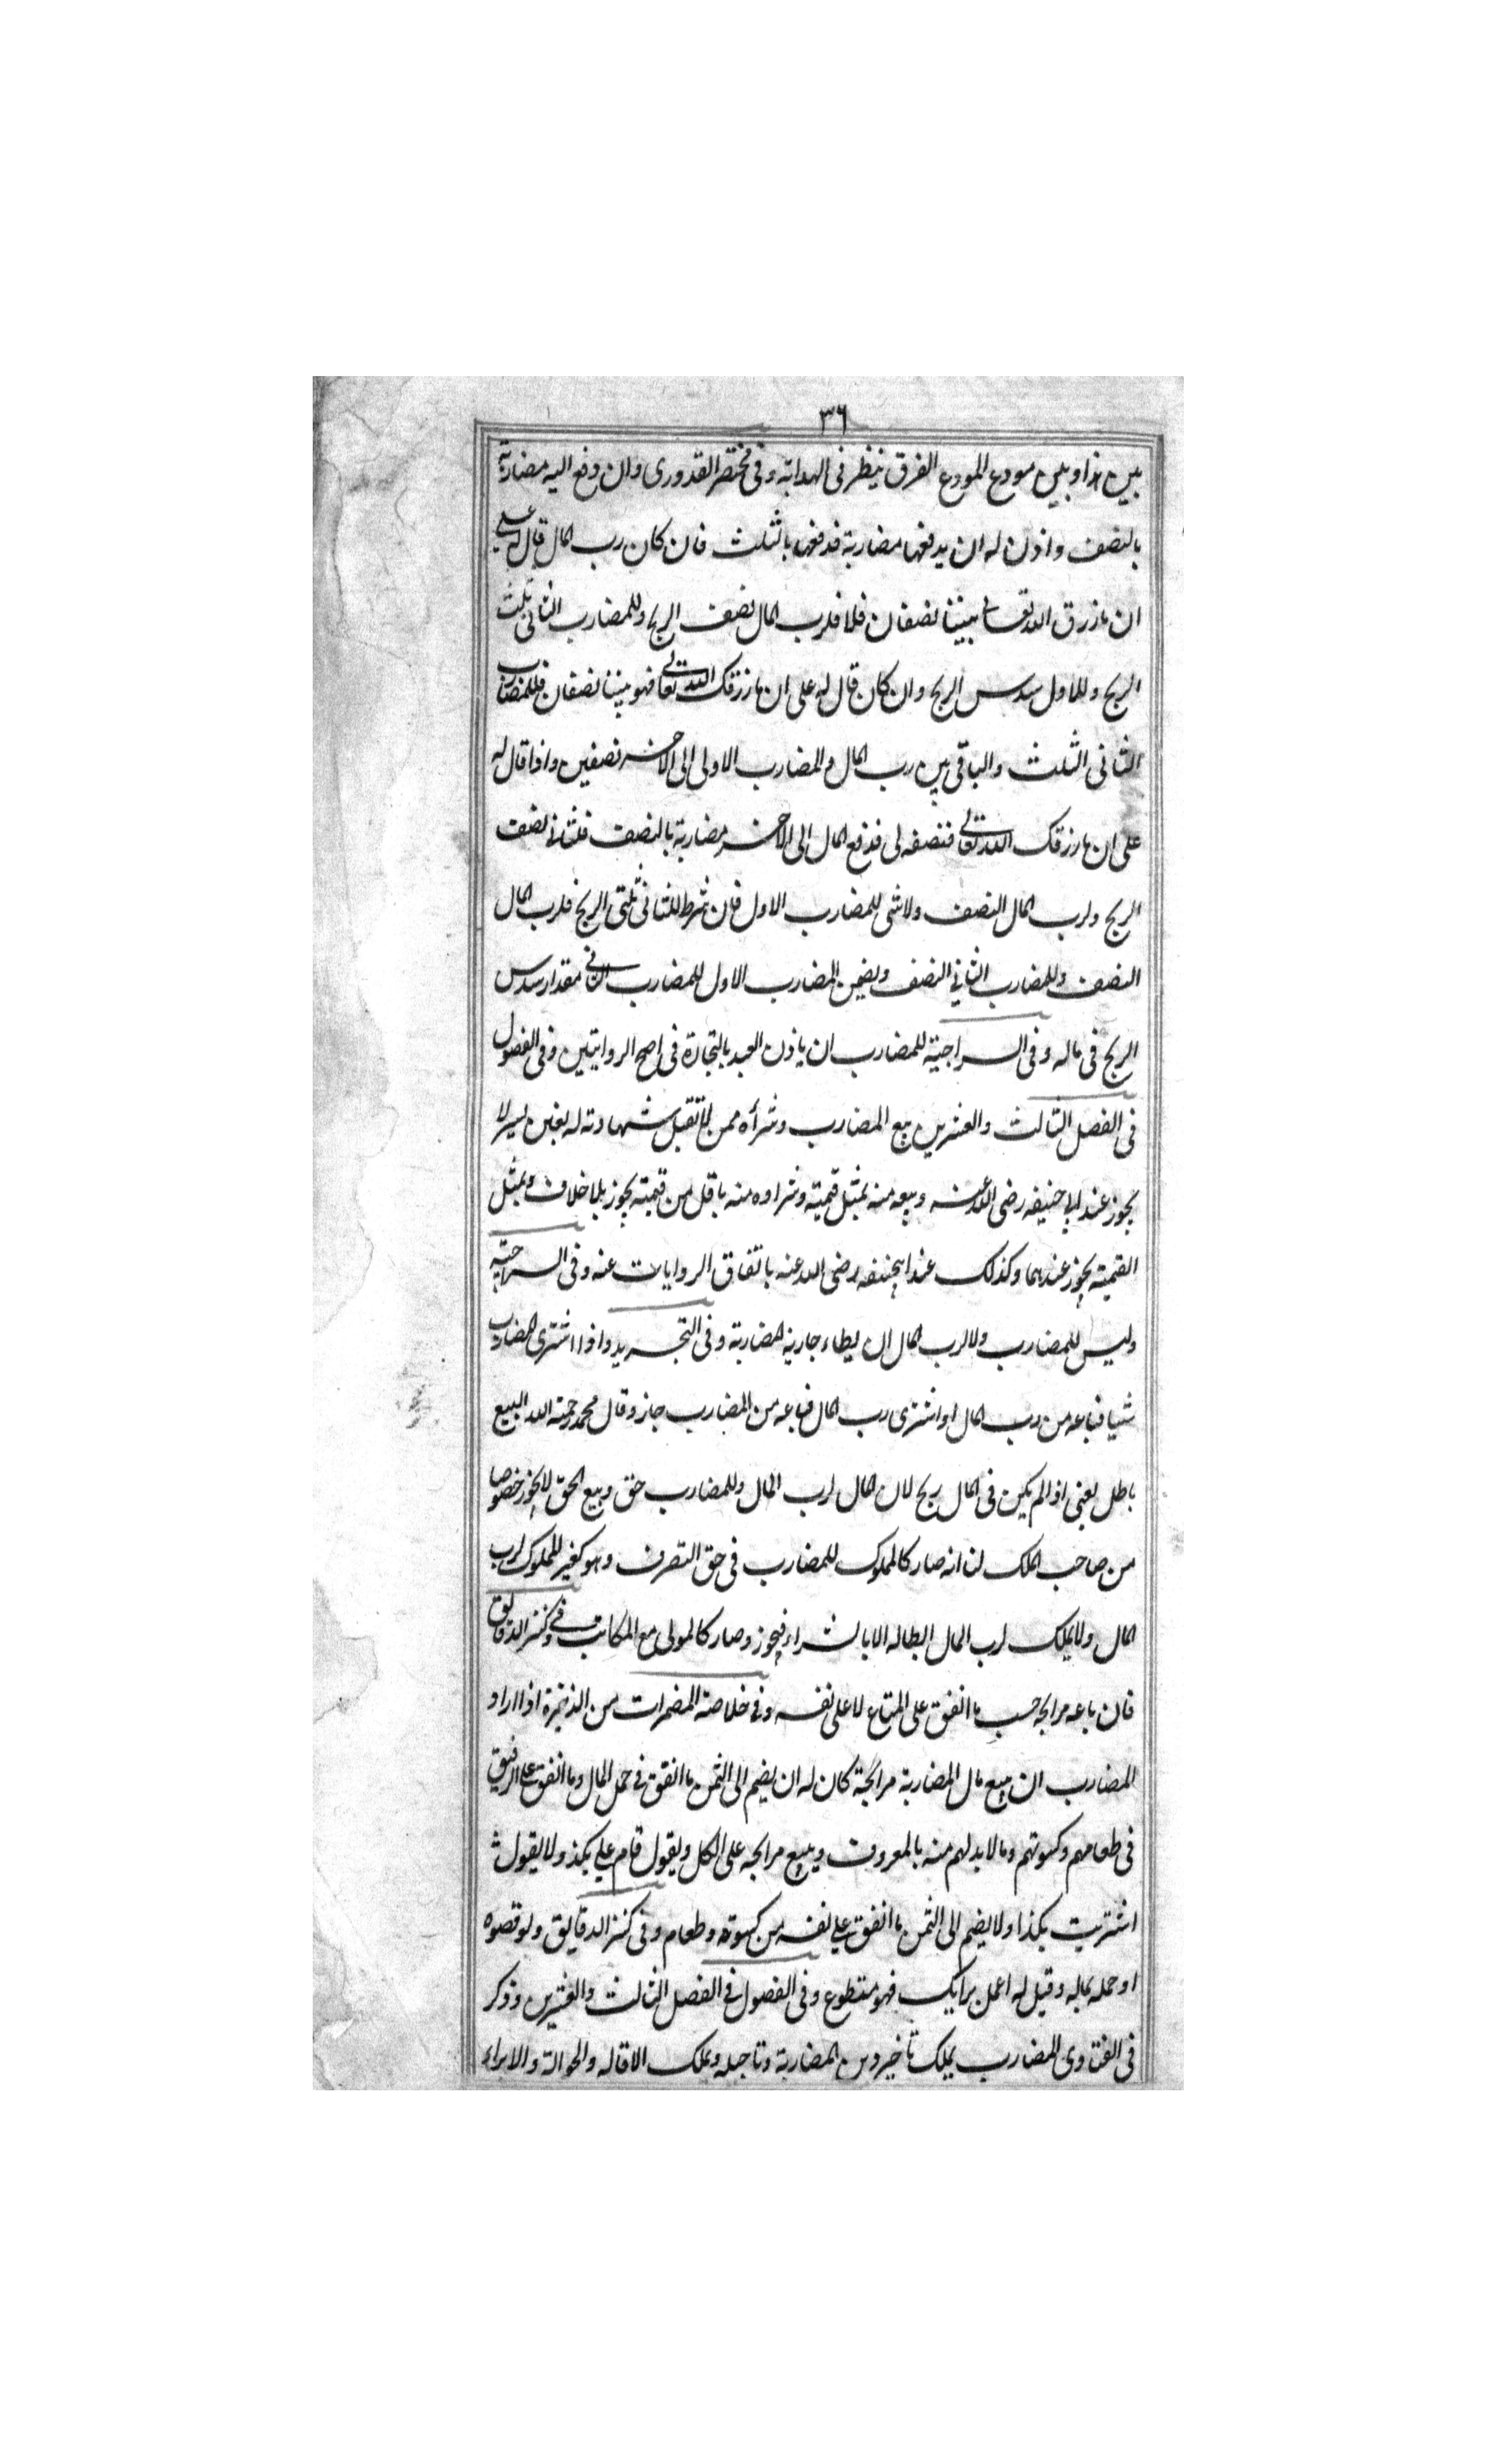 ٣٦
بين هذا وبين مودع المودع الفرق ينظر فى الهداية وفى مختصر القدورى وان دفع اليه مضاربة
بالنصف واذن له ان يدفعها مضاربة فدفعها بالثلث فان كان رب المال قال له على
ان ما رزق الله تعالى بيننا نصفان فلا فلرب المال نصف الربح وللمضارب الثانى ثلث
الربح وللاول سدس الربح وان كان قال له على ان ما رزقك الله تعالى فهو بيننا نصفان فللمضارب
الثانى الثلث والباقى بين رب المال والمضارب الاول الى الاخر نصفين واذا قال له
على ان ما رزقك الله تعالى فنصفه لى فدفع المال الى الاخر مضاربة بالنصف فللثانى نصف
الربح ولرب المال النصف ولا شى للمضارب الاول فان شرط للثانى ثلثى الربح فلرب المال
النصف وللمضارب الثانى النصف ويضمن المضارب الاول للمضارب الثانى مقدار سدس
الربح فى ماله وفى السراجية للمضارب ان ياذن العبد بالتجارة فى اصح الروايتين وفى الفصول
فى الفصل الثالث والعشرين بيع المضارب وشرأه ممن لا تقبل شهادته له بغبن يسير لا
يجوز عند ابى حنيفه رضى الله عنه وبيعه منه بمثل قيمته وشراوه منه باقل من قيمته يجوز بلا خلاف وبمثل
القيمة يجوز عندهما وكذلك عند ابيحنيفه رضى الله عنه باتفاق الروايات عنه وفى السراجية
وليس للمضارب ولا لرب المال ان يطاء جارية المضاربة وفى التجريد واذا اشترى المضارب
شيا فباعه من رب المال او اشترى رب المال فباعه من المضارب جاز وقال محمد رحمة الله البيع
باطل يعنى اذا لم يكن فى المال ربح لان المال لرب المال وللمضارب حق وبيع الحق لا يجوز خصوصا
من صاحب الملك لنا انه صار كالمملوك للمضارب فى حق التصرف وهو كغير المملوك لرب
المال ولا يملك لرب المال ابطاله الا بالشراء فيجوز وصار كالمولى مع المكاتب وفى كنز الدقايق
فان باعه مرابحه حسب ما انفق على المتاع لا على نفسه وفى خلاصة المضمرات من الذخيرة اذا اراد
المضارب ان يبيع مال المضاربة مرابحة كان له ان يضم الى الثمن ما انفق فى حمل المال وما انفق على الرقيق
فى طعامهم وكسوتهم وما لابد لهم منه بالمعروف ويبيع مرابحه على الكل ويقول قام على بكذ ولا يقول
اشتريت بكذا ولا يضم الى الثمن ما انفق على نفسه من كسوته وطعام وفى كنز الدقايق ولو قصره
او حمله بماله وقيل له اعمل برايك فهو متطوع وفى الفصول فى الفصل الثالث والعشرين وذكر
فى الفتاوى المضارب يملك تاخير دين المضاربة وتاجيله ويملك الاقاله والحوالة والابراء